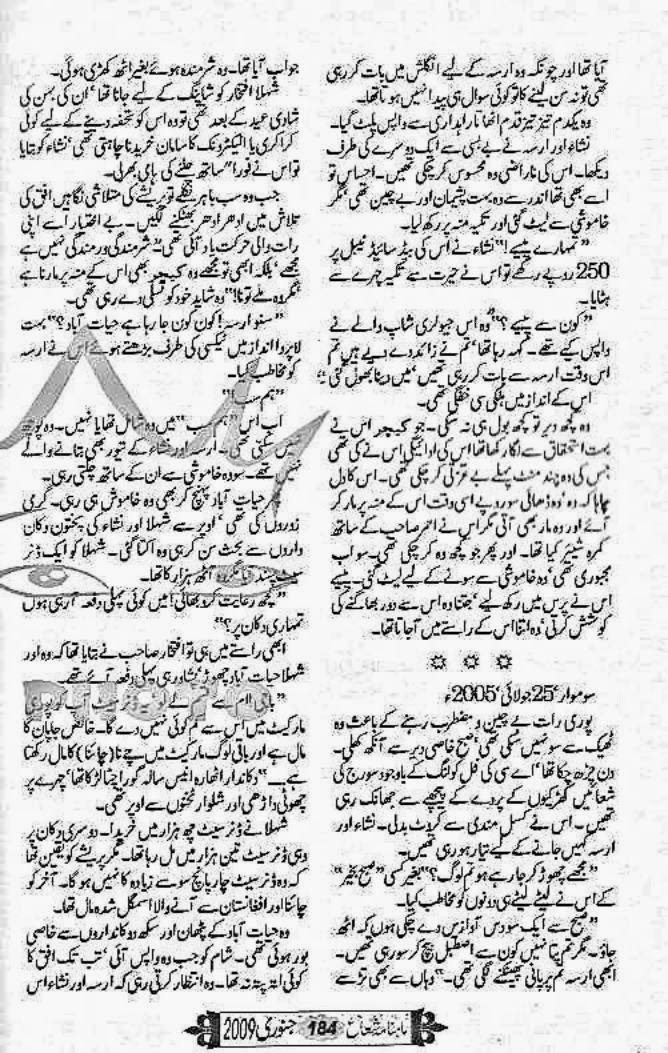 آیا تھا اور چونکہ وہ ارسہ کے لیے انگلش میں بات کر رہی
تھی تو نہ سن لینے کا تو کوئی سوال ہی پیدا نہیں ہوتا تھا۔
وہ یکدم تیز تیز قدم اٹھاتا راہداری سے واپس پلٹ گیا۔
نشاء اور ارسہ نے بے بسی سے ایک دوسرے کی طرف
دیکھا۔ اس کی ناراضی وہ محسوس کر چکی تھیں۔ احساس تو
اسے بھی تھا اندر سے وہ بہت پشیمان اور بے چین تھی‘ مگر
خاموشی سے لیٹ گئی اور تکیہ منہ پر رکھ لیا۔
”تمہارے پیسے!“ نشاء نے اس کی بیڈ سائیڈ ٹیبل پر
250 روپے رکھے تو اس نے حیرت سے تکیہ چہرے سے
ہٹایا۔
”کون سے پیسے؟“ ”وہ اس جیولری شاپ والے نے
واپس کیے تھے۔ کہہ رہا تھا‘ تم نے زائد دے دیے ہیں تم
اس وقت ارسہ سے بات کر رہی تھیں‘ میں دینا بھول گئی“
اس کے انداز میں ہلکی سی خفگی تھی۔
وہ کچھ دیر تو کچھ بول ہی نہ سکی۔ جو کیچر اس نے
بہت استحقاق سے لے کر رکھا تھا اس کی ادائیگی اس نے کی تھی
جس کی وہ چند منٹ پہلے بے عزتی کر چکی تھی۔ اس کا دل
چاہا کہ وہ ڈھائی سو روپے اسی وقت اس کے منہ پر مار کر
آئے اور وہ مار بھی آتی مگر اس نے احمر صاحب کے ساتھ
کمرہ شیئر کیا تھا۔ اور پھر جو کچھ وہ کر چکی تھی۔ سو اب
مجبوری تھی‘ وہ خاموشی سے سونے کے لیے لیٹ گئی۔ پیسے
اس نے پرس میں رکھ لیے‘ جتنا وہ اس سے دور بھاگنے کی
کوشش کرتی‘ وہ اتنا اس کے راستے میں آ جاتا تھا۔
سوموار‘ 25 جولائی‘ 2005ء
پوری رات بے چین و مضطرب رہنے کے باعث وہ
ٹھیک سے سو نہیں سکی تھی‘ صبح خاصی دیر سے آنکھ کھلی۔
دن چڑھ چکا تھا‘ اے سی کی فل کولنگ کے باوجود سورج کی
شعاعیں کھڑکیوں کے پردے کے پیچھے سے جھانک رہی
تھیں۔ اس نے کسل مندی سے کروٹ بدلی۔ نشاء اور
ارسہ کہیں جانے کے لیے تیار ہو رہی تھیں۔
”مجھے چھوڑ کر جا رہے ہو تم لوگ؟“ بغیر کسی ”صبح بخیر“
کے اس نے لیٹے لیٹے ہی دونوں کو مخاطب کیا۔
”صبح سے ایک سو دس آوازیں دے چکی ہوں کہ اٹھ
جاؤ۔ مگر تم پتا نہیں کون سے اصطبل بیچ کر سو رہی تھیں۔
ابھی ارسہ تم پر پانی پھینکنے لگی تھی۔“ وہاں سے بھی تڑ سے
جواب آیا تھا۔ وہ شرمندہ ہوئے بغیر اٹھ کھڑی ہوئی۔
شہلا افتخار کو شاپنگ کے لیے جانا تھا‘ ان کی بہن کی
شادی عید کے بعد تھی تو وہ اس کو تحفہ دینے کے لیے کوئی
کراکری یا الیکٹرونک کا سامان خریدنا چاہتی تھی‘ نشاء کو بتایا
تو اس نے فورا”ساتھ چلنے کی ہامی بھر لی۔
جب وہ سب باہر نکلے تو پریشے کی متلاشی نگاہیں افق کی
تلاش میں ادھر ادھر بھٹکنے لگیں۔ بے اختیار اسے اپنی
رات والی حرکت یاد آئی تھی ”شرمندگی ورمندگی نہیں ہے
مجھے‘ بلکہ ابھی تو مجھے وہ کیچر بھی اس کے منہ پر مارنا ہے
مگر وہ ملے تو نا!“ وہ شاید خود کو تسلی دے رہی تھی۔
”سنو ارسہ! کون کون جا رہا ہے حیات آباد؟“ بہت
لاپروا انداز میں ٹیکسی کی طرف بڑھتے ہوئے اس نے ارسہ
کو مخاطب کیا۔
”ہم سب!“
اب اس ”ہم سب“ میں وہ شامل تھا یا نہیں۔ وہ پوچھ
نہیں سکی تھی۔ ارسہ اور نشاء کے تیور بھی بتانے والے
نہیں تھے۔ سو وہ خاموشی سے ان کے ساتھ چلتی رہی۔
حیات آباد پہنچ کر بھی وہ خاموش ہی رہی۔ گرمی
زوروں کی تھی‘ اوپر سے شہلا اور نشاء کی پختون دکان
داروں سے بحث سن کر ہی وہ اکتا گئی۔ شہلا کو ایک ڈنر
سیٹ پسند آیا مگر وہ آٹھ ہزار کا تھا۔
”کچھ رعایت کرو بھائی! میں کوئی پہلی دفعہ آ رہی ہوں
تمہاری دکان پر؟“
ابھی راستے میں ہی تو افتخار صاحب نے بتایا تھا کہ وہ اور
شہلا حیات آباد چھوڑ‘ پشاور ہی پہلی دفعہ آئے تھے۔
”باجی! ام سے قسم لے لو یہ ڈنر سیٹ آپ کو پوری
مارکیٹ میں اس سے کم کوئی نہیں دے گا۔ خالص جاپان کا
مال ہے اور باقی لوگ مارکیٹ میں چے نا (چائنا) کا مال رکھتا
ہے۔“ دکاندار اٹھارہ انیس سالہ گورا چٹا لڑکا تھا‘ چہرے پر
چھوٹی داڑھی اور شلوار ٹخنوں سے اوپر تھی۔
شہلا نے ڈنر سیٹ چھ ہزار میں خریدا۔ دوسری دکان پر
وہی ڈنر سیٹ تین ہزار میں مل رہا تھا۔ مگر پریشے کو یقین تھا
کہ وہ ڈنر سیٹ چار پانچ سو سے زیادہ کا نہیں ہو گا۔ آخر کو
چائنا اور افغانستان سے آنے والا اسمگل شدہ مال تھا۔
وہ حیات آباد کے پٹھان اور سکھ دکانداروں سے خاصی
بور ہوئی تھی۔ شام کو جب وہ واپس آئی‘ تب تک افق کا
کوئی اتہ پتہ نہ تھا۔ وہ انتظار کرتی رہی کہ ارسہ اور نشاء اس
ماہنامہ شعاع 184 جنوری 2009